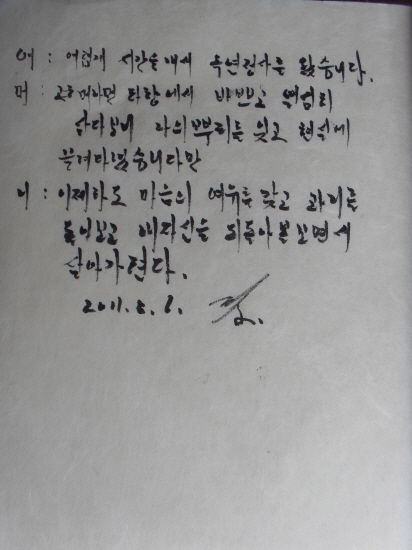 어 : 어렵게 시간을 내서 옥연정사를 왔습니다.
머 : 고향 떠나면 타향에서 바쁘고
살다보니 나의 뿌리를 잊고 현실에
끌려다녔습니다만
니 : 이제라도 마음의 여유를 갖고 과거를
돌아보고 내자신을 되돌아 볼보면서
살아가련다.
2011. 5. 1.